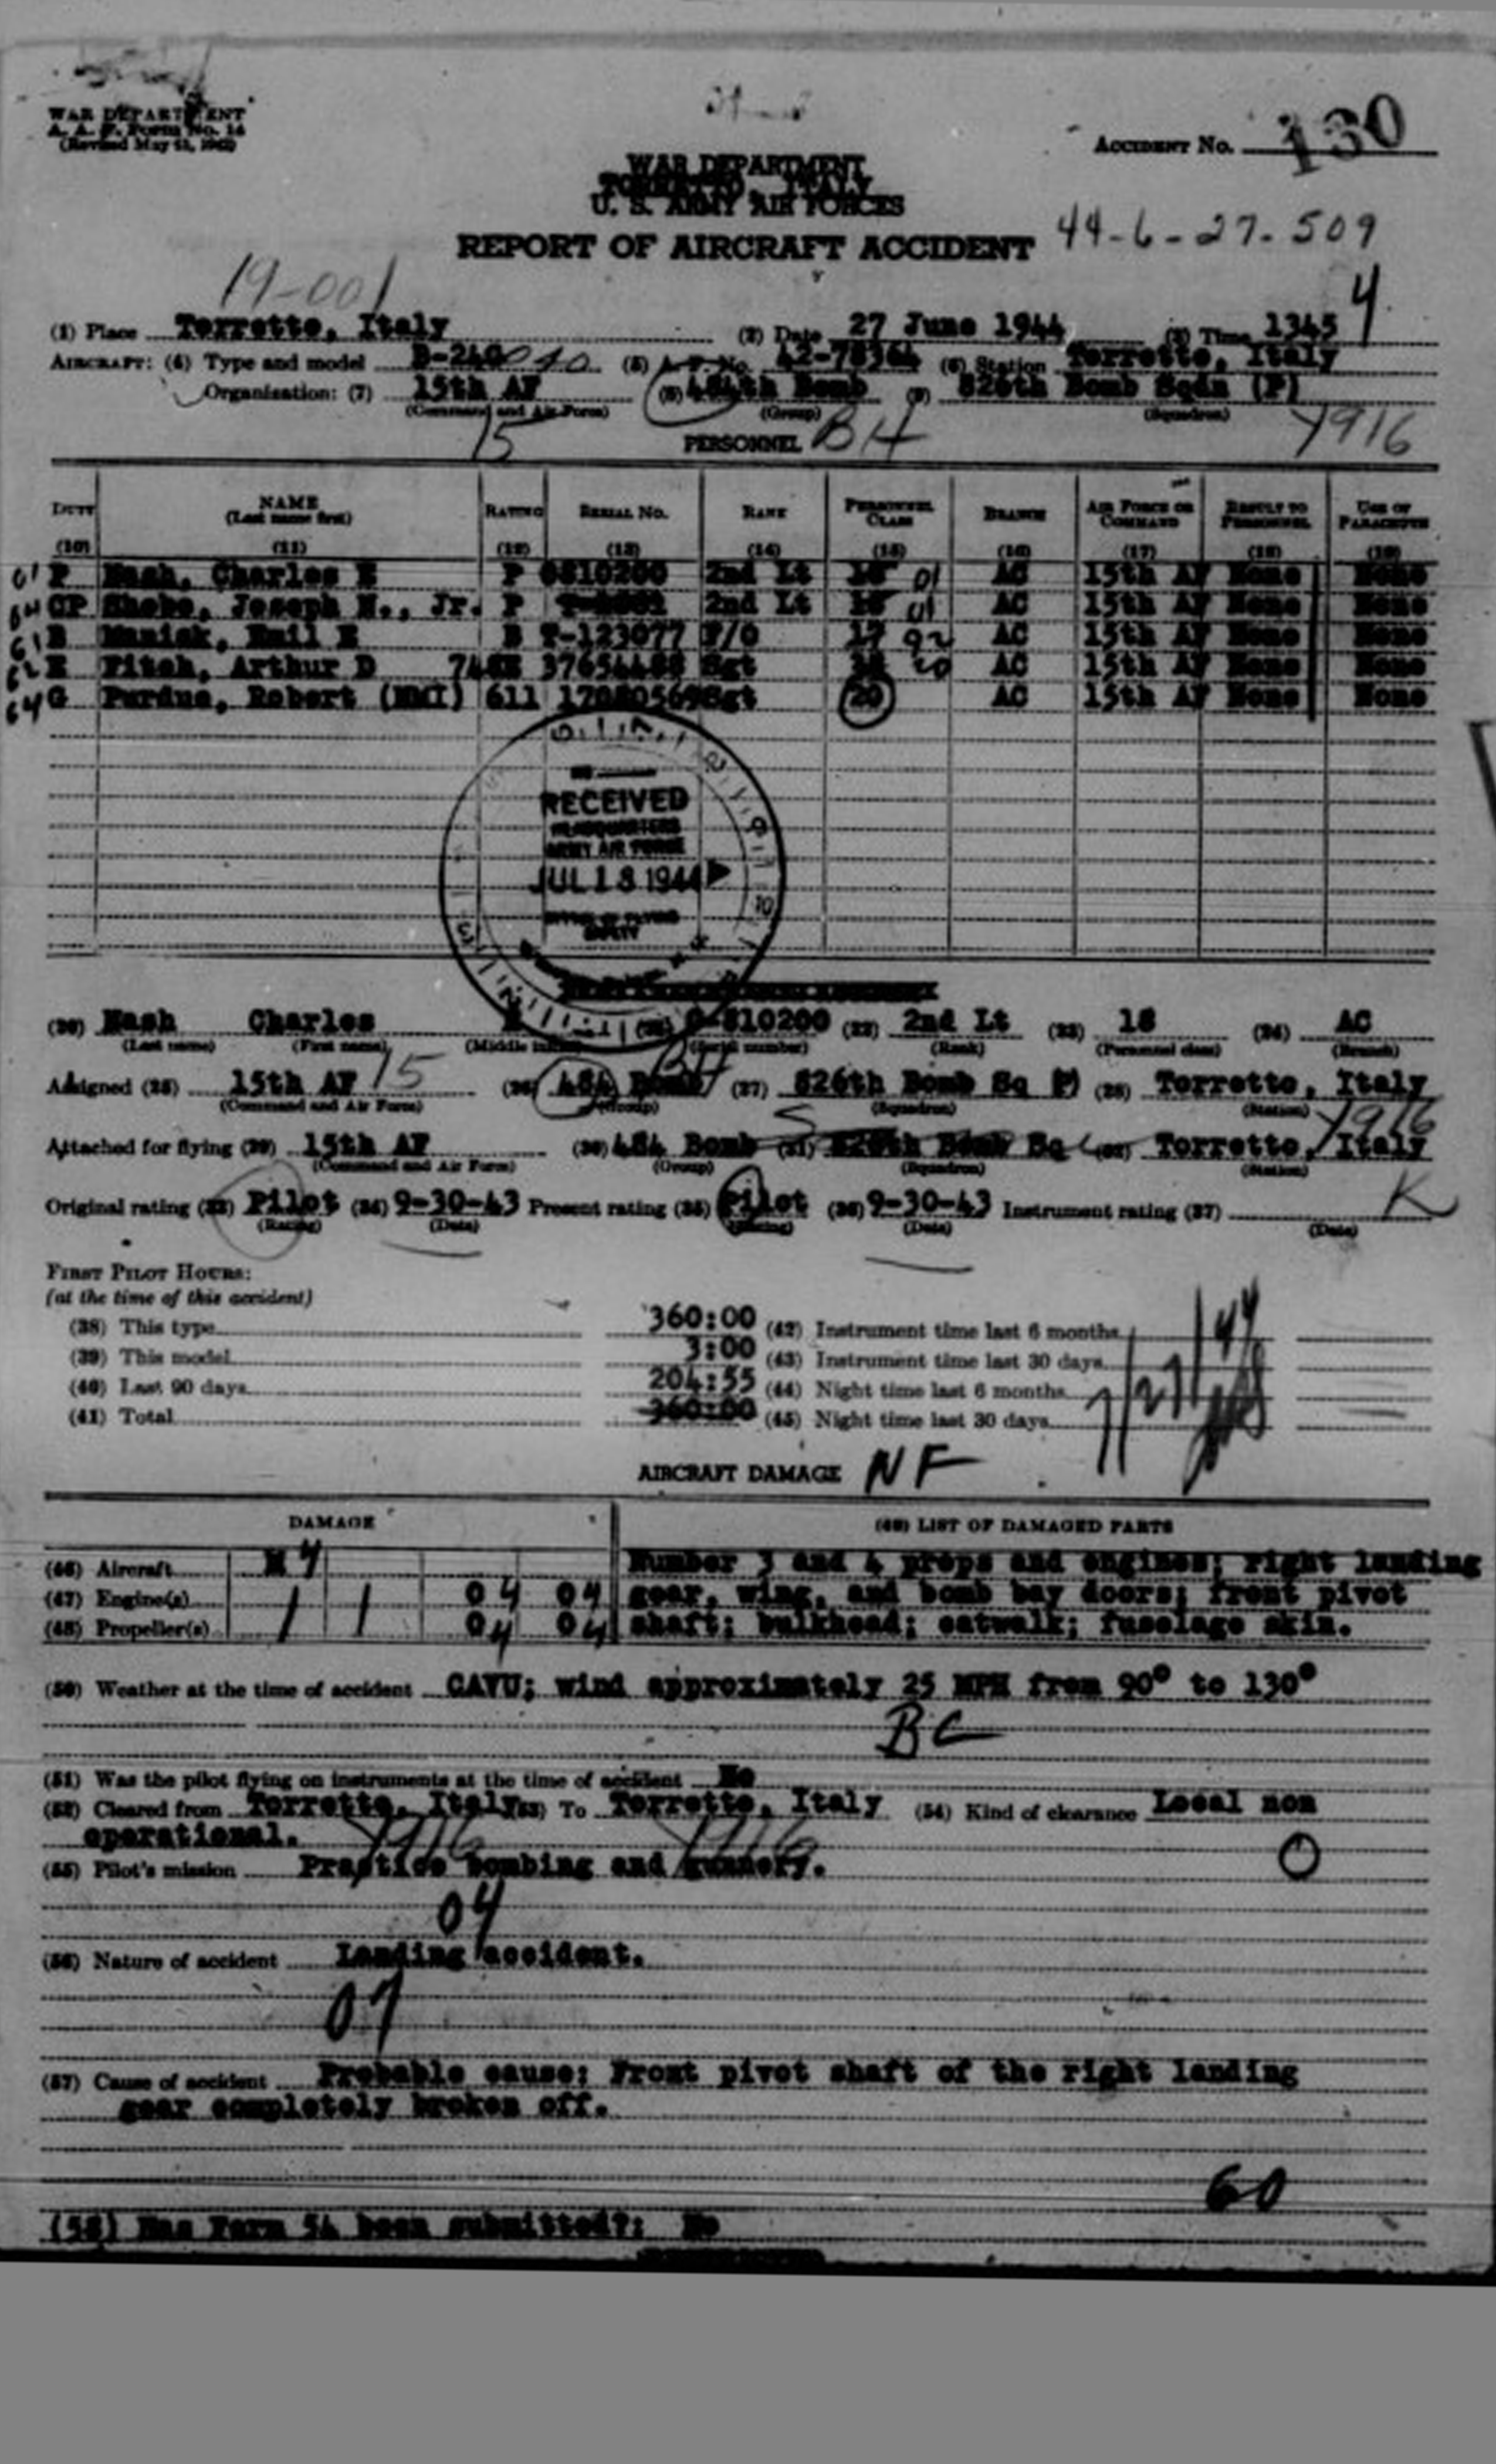 WAR DEPARTMENT
A. A. F. Form No. 14
(Revised May 15, 1942)
ACCIDENT No. 130
WAR DEPARTMENT
TORRETTO, ITALY
U. S. ARMY AIR FORCES
REPORT OF AIRCRAFT ACCIDENT 44-6-27-509
19-001
4
(1) Place Torretto, Italy (2) Date 27 June 1944 (3) Time 1345
AIRCRAFT: (4) Type and model B-24G (5) A.F. No. 42-78364 (6) Station Torretto, Italy
Organization: (7) 15th AF (8) 484th Bomb (9) 826th Bomb Sqdn (P)
(Command and Air Force) (Group) (Squadron)
15 PERSONNEL BH Y916
DUTY NAME (Last name first) RATING SERIAL No. RANK PERSONNEL CLASS BRANCH AIR FORCE OR COMMAND RESULT TO PERSONNEL USE OF PARACHUTE
(10) (11) (12) (13) (14) (15) (16) (17) (18) (19)
01 P Nash, Charles P 2nd Lt 18 01 AC 15th AF None None
CP Joseph Jr. P 2nd Lt 18 01 AC 15th AF None None
61 B B T-123077 F/O 17 92 AC 15th AF None None
62 E Fitch, Arthur D Sgt 20 AC 15th AF None None
64 G Purdue, Robert (NMI) 611 Sgt 20 AC 15th AF None None
RECEIVED
HEADQUARTERS
ARMY AIR FORCE
JUL 18 1944
OFFICE OF FLYING
SAFETY
(20) Nash Charles (21) O-810200 (22) 2nd Lt (23) 18 (24) AC
(Last name) (First name) (Middle initial) (Serial number) (Rank) (Personnel class) (Branch)
Assigned (25) 15th AF 15 (26) 484 Bomb BH (27) 826th Bomb Sq (28) Torretto, Italy
(Command and Air Force) (Group) (Squadron) (Station)
Y916
Attached for flying (29) 15th AF (30) 484 Bomb (31) 826th Bomb Sq (32) Torretto, Italy
(Command and Air Force) (Group) (Squadron) (Station)
K
Original rating (33) Pilot (34) 9-30-43 Present rating (35) Pilot (36) 9-30-43 Instrument rating (37)
(Rating) (Date) (Rating) (Date) (Date)
FIRST PILOT HOURS:
(at the time of this accident)
(38) This type 360:00 (42) Instrument time last 6 months
(39) This model 3:00 (43) Instrument time last 30 days
(40) Last 90 days 204:55 (44) Night time last 6 months
(41) Total 360:00 (45) Night time last 30 days
AIRCRAFT DAMAGE NF
DAMAGE (49) LIST OF DAMAGED PARTS
(46) Aircraft 4 Number 3 and 4 props and engines; right landing
(47) Engine(s) 1 1 04 04 gear, wing, and bomb bay doors; front pivot
(48) Propeller(s) 04 04 shaft; bulkhead; catwalk; fuselage skin.
(50) Weather at the time of accident CAVU; wind approximately 25 MPH from 90° to 130°
BC
(51) Was the pilot flying on instruments at the time of accident No
(52) Cleared from Torretto, Italy (53) To Torretto, Italy (54) Kind of clearance Local non
operational. Y916 Y916
(55) Pilot's mission Practice bombing and gunnery. O
04
(56) Nature of accident Landing accident.
07
(57) Cause of accident Probable cause: Front pivot shaft of the right landing
gear completely broken off.
60
(58) Has Form 54 been submitted?: No